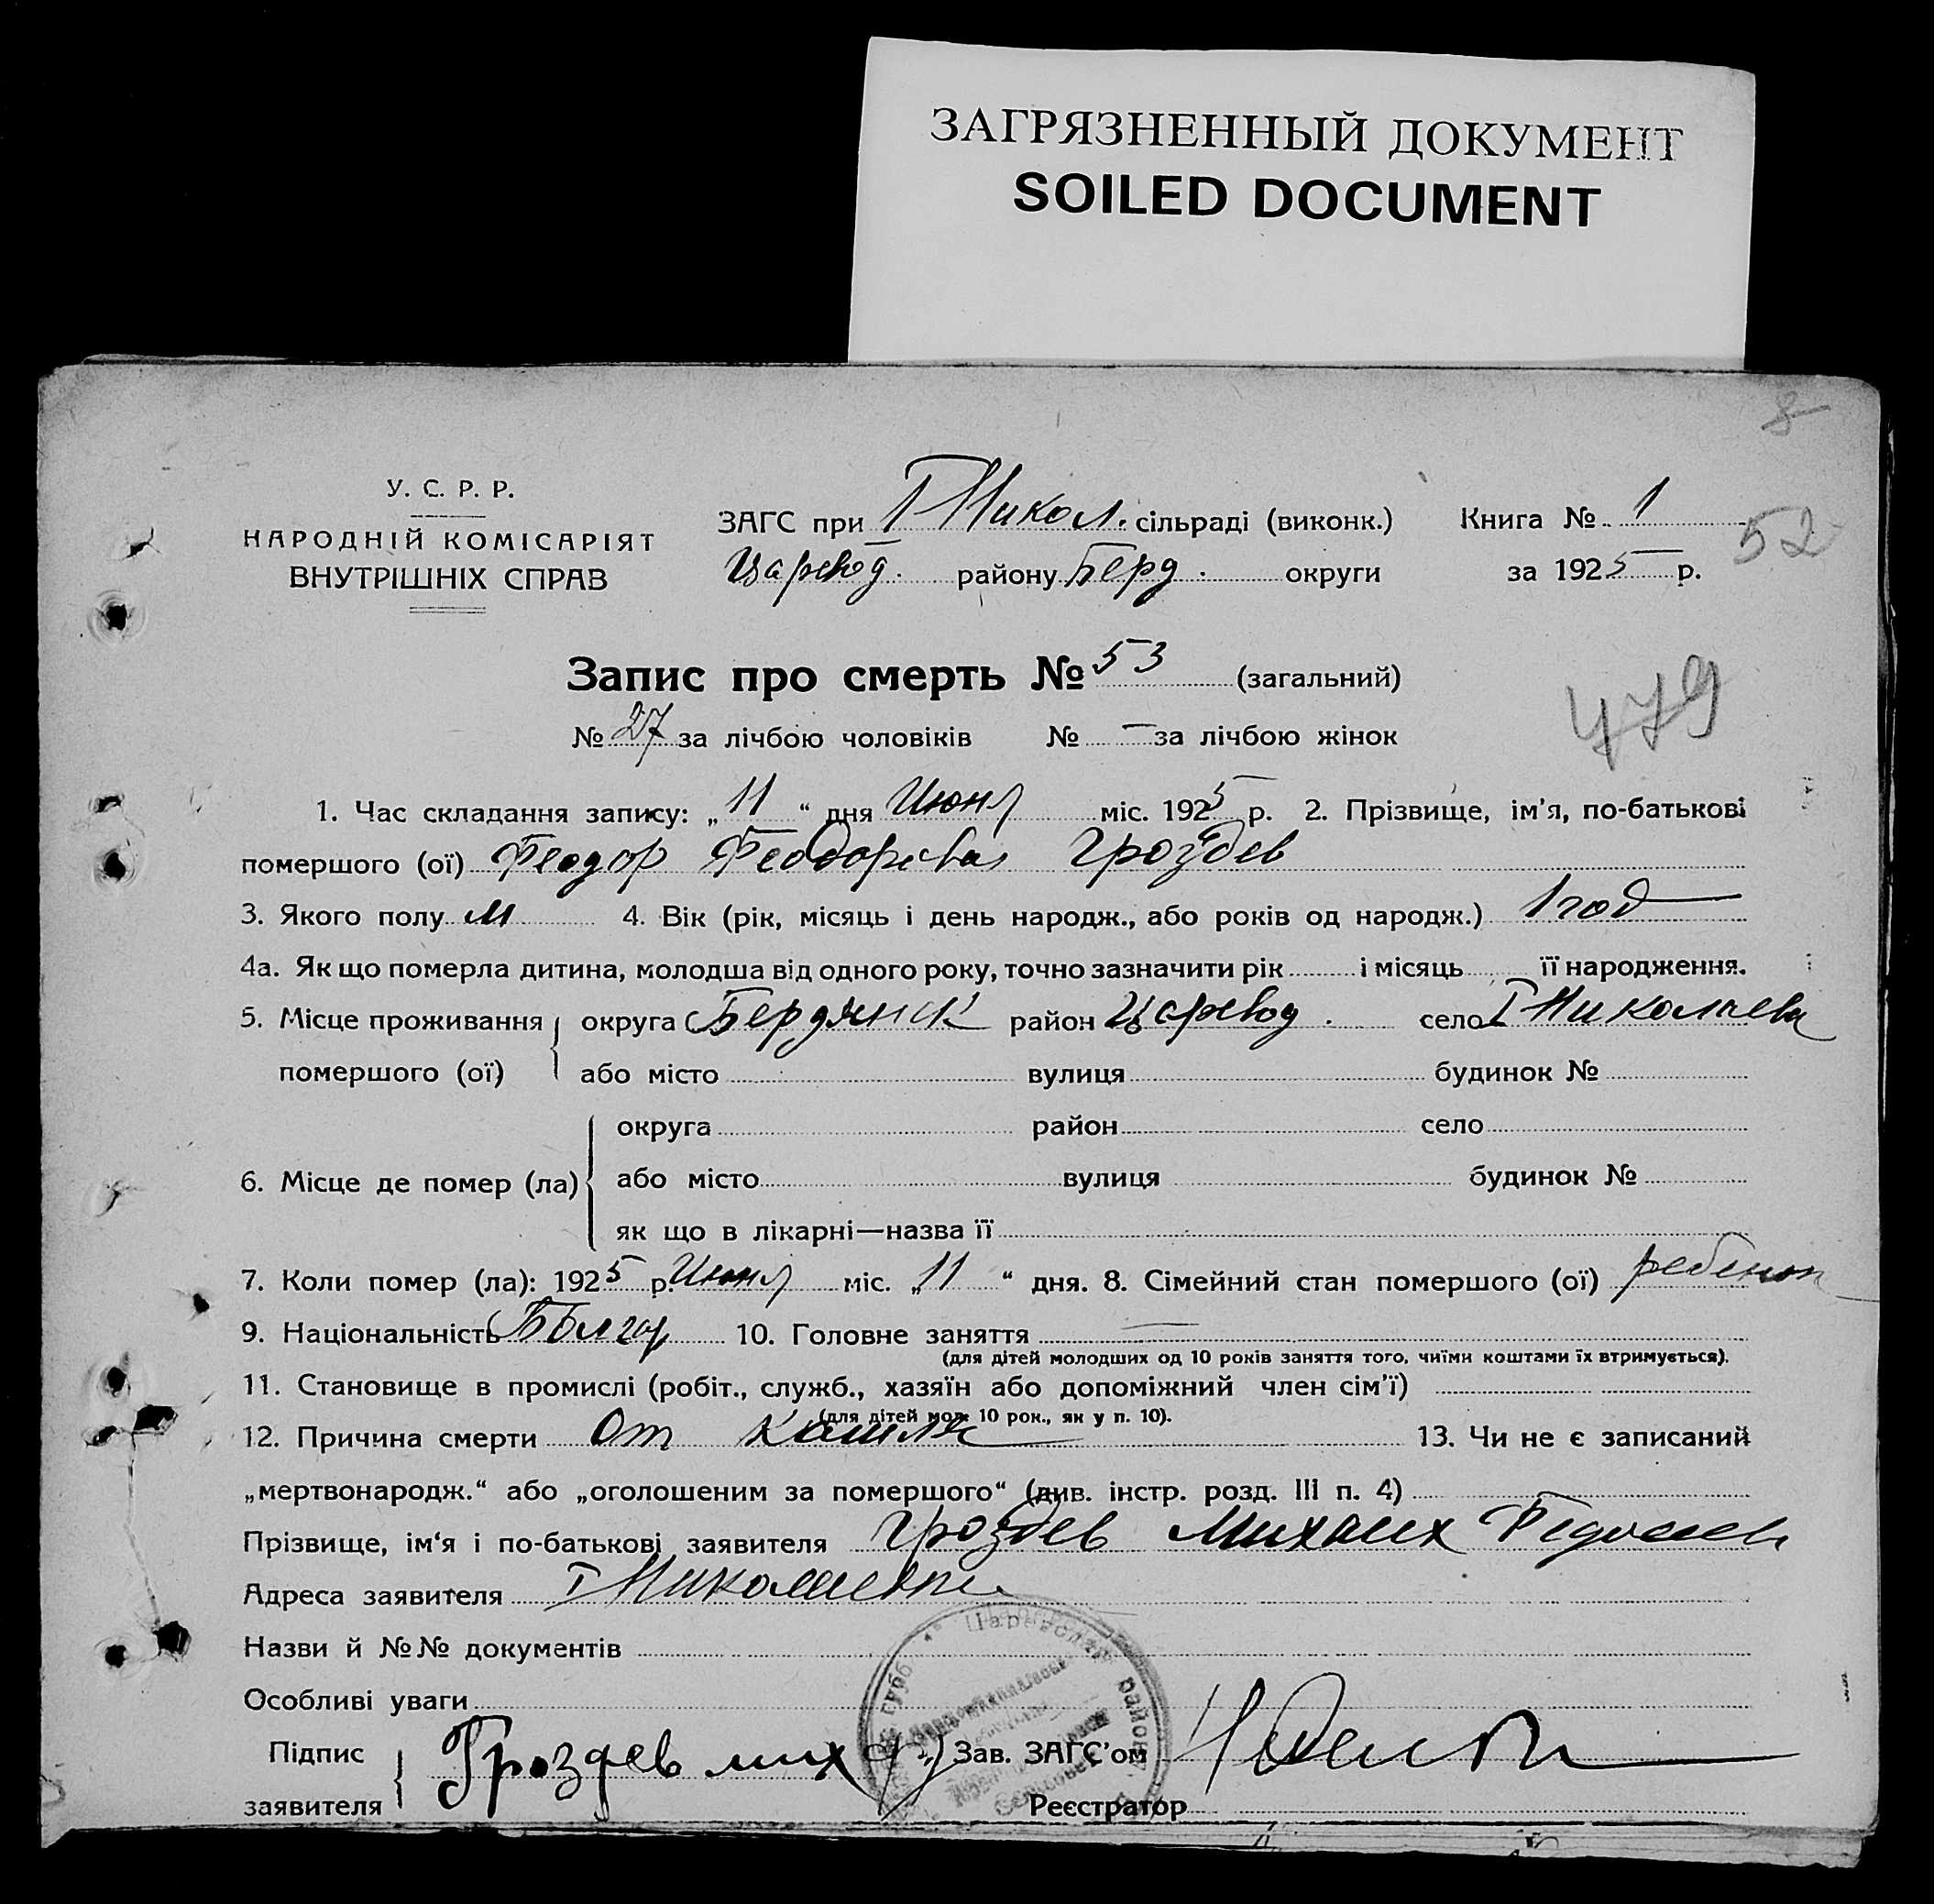 ЗАГРЯЗНЕННЫЙ ДОКУМЕНТ
SOILED DOCUMENT
8
У. С. Р. Р.
НАРОДНІЙ КОМІСАРІЯТ
ВНУТРІШНІХ СПРАВ
ЗАГС при I Никол. сільраді (виконк.) Книга № 1
52
Царевод. району Берд. округи за 1925 р.
Запис про смерть № 53 (загальний)
479
№ 27 за лічбою чоловіків № — за лічбою жінок
1. Час складання запису: „11“ дня Июня міс. 1925 р. 2. Прізвище, ім'я, по-батькові
помершого (ої) Феодор Феодоревич Гроздев
3. Якого полу М 4. Вік (рік, місяць і день народж., або років од народж.) 1 год
4а. Як що померла дитина, молодша від одного року, точно зазначити рік і місяць її народження.
5. Місце проживання помершого (ої) округа Бердянск район Царевод. село I Николаевка
або місто вулиця будинок №
6. Місце де помер (ла) округа район село
або місто вулиця будинок №
як що в лікарні—назва її
7. Коли помер (ла): 1925 р. Июня міс. „11“ дня. 8. Сімейний стан помершого (ої) ребенок
9. Національність Болгар 10. Головне заняття —
(для дітей молодших од 10 років заняття того, чиїми коштами їх втримується).
11. Становище в промислі (робіт., служб., хазяїн або допоміжний член сім'ї)
(для дітей мол. 10 рок., як у п. 10).
12. Причина смерти От кашля 13. Чи не є записаний
„мертвонародж.“ або „оголошеним за помершого“ (див. інстр. розд. III п. 4)
Прізвище, ім'я і по-батькові заявителя Гроздев Михаил
Адреса заявителя I
Назви й №№ документів
Особливі уваги
Підпис заявителя Гроздев мих Зав. ЗАГС'ом
Реєстратор